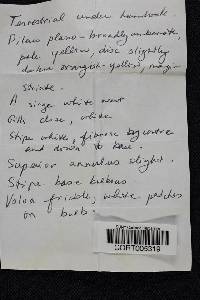 Terrestrial under hardwoods.
Pileus plano-broadly umbonate,
pale yellow, disc slightly
darker orangish-yellow, margin
striate.
A single white wart
Gills close, white
Stipe white, fibrose by centre
and down to base.
Superior annulus slight.
Stipe base bulbous
Volva friable, white patches
on bulb.
CORT006319